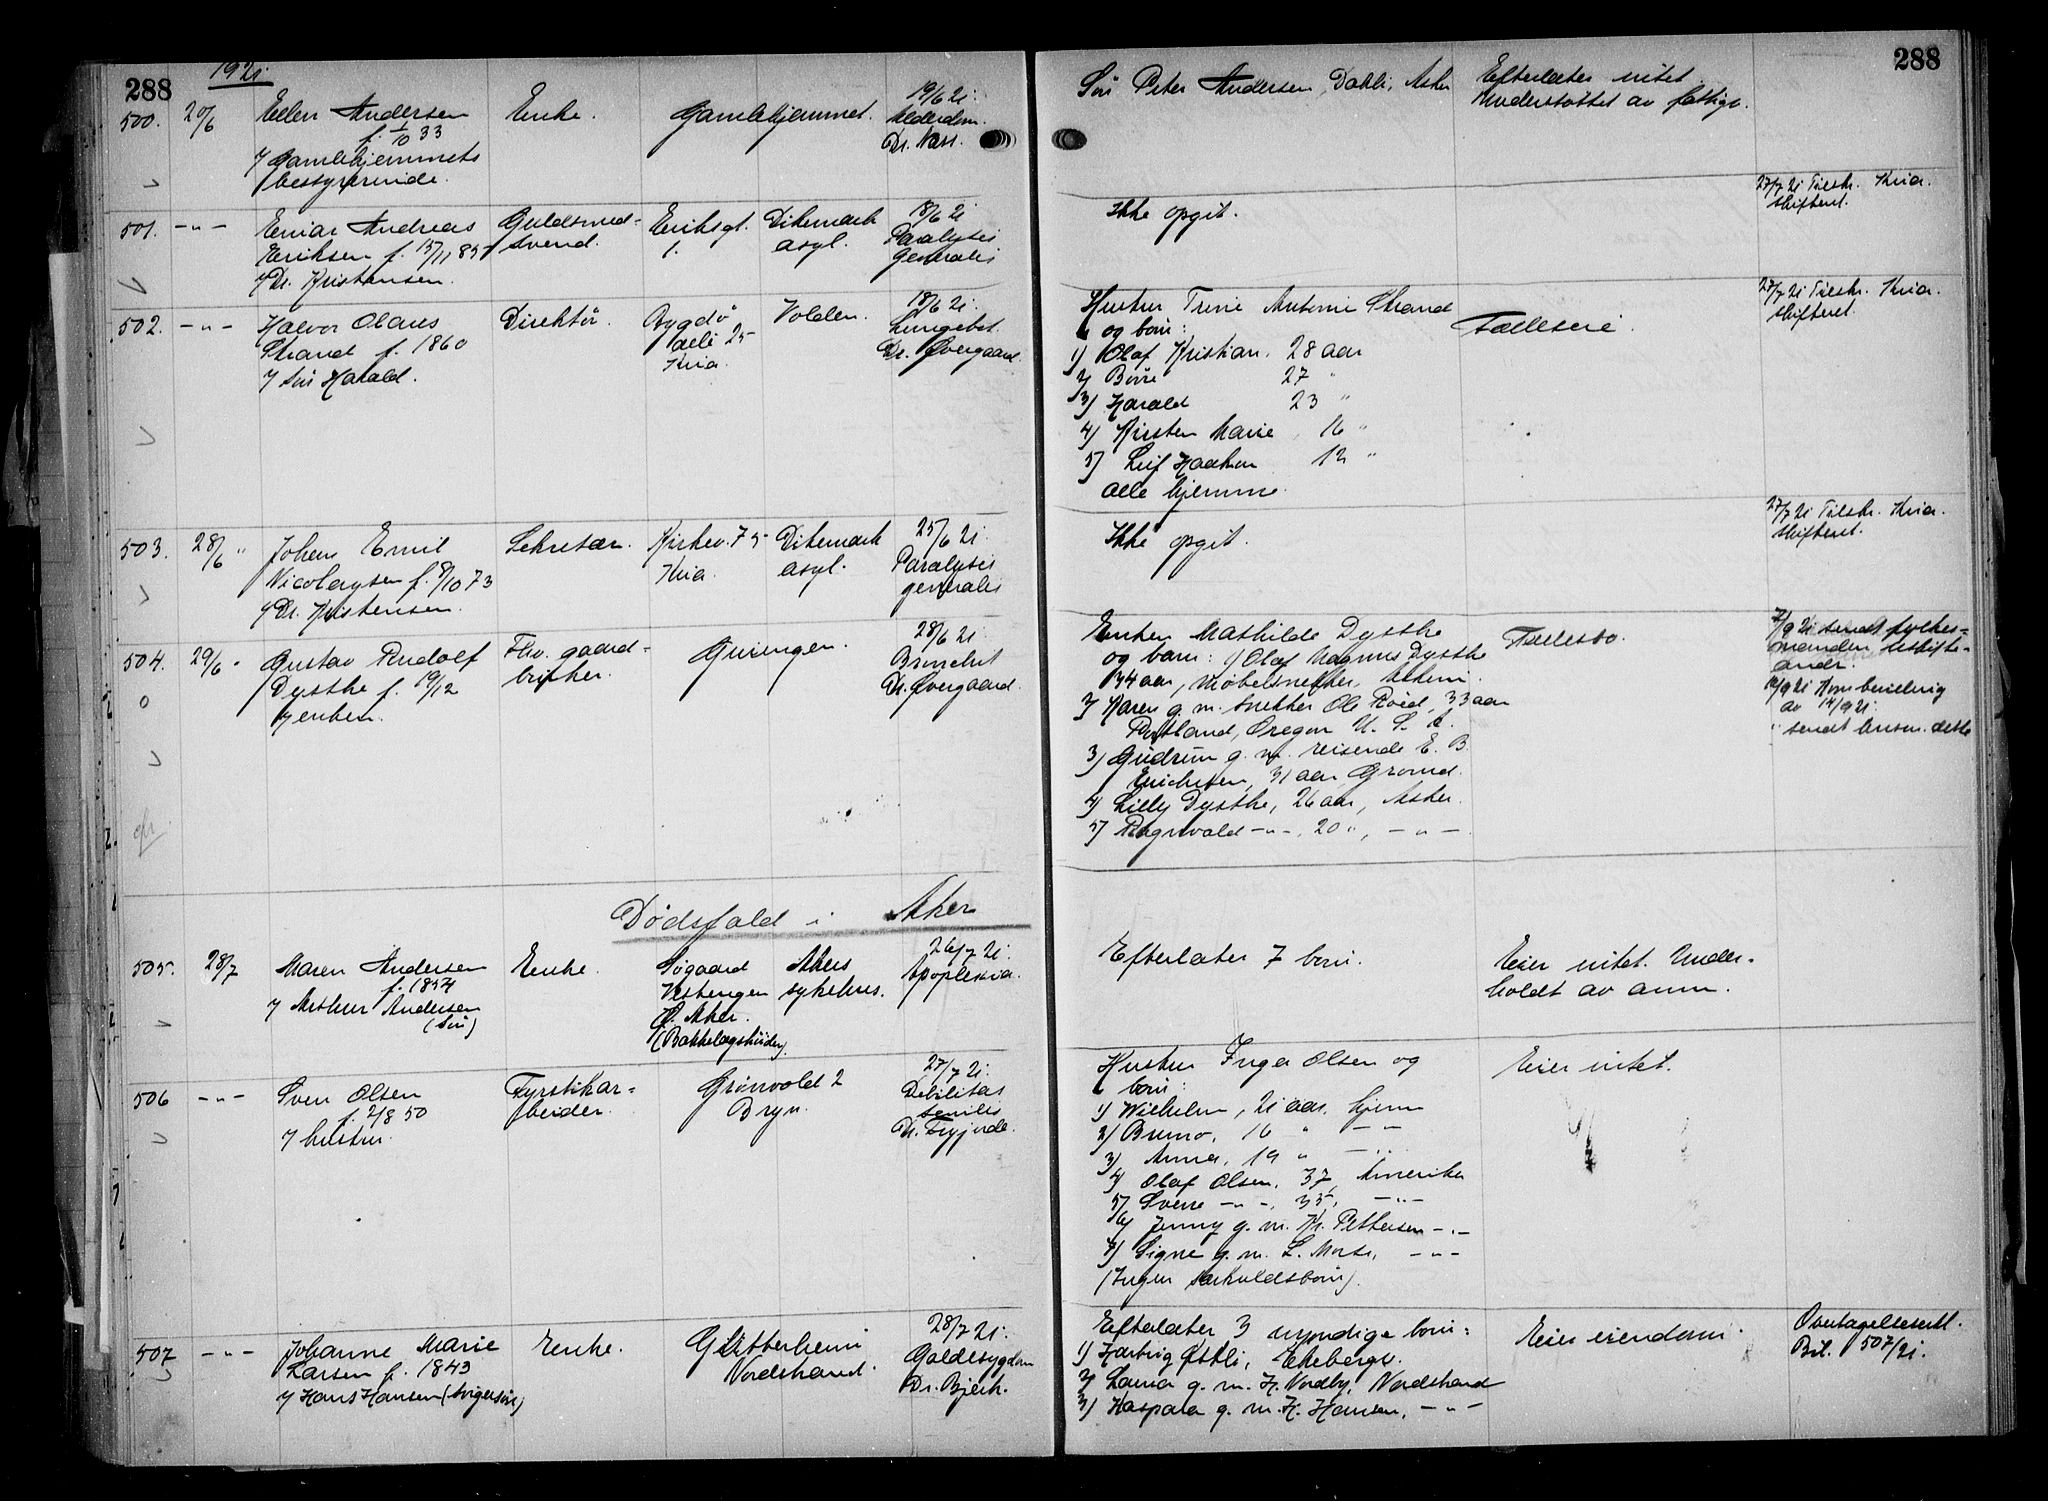 288
1921
500. 20/6 Ellen Andersen
f. 1/10 33
v/ Gamlehjemmets
bestyrerinde.
Enke.
Gamlehjemmet.
19/6 21.
Alderdom.
Dr. Næss.
501. -"- Einar Andreas
Eriksen f. 15/11 85
v/ Dr. Kristensen.
Guldsmed-
svend.
Eriksgt.
1.
Dikemark
asyl.
18/6 21
Paralysis
generalis
502. -"- Halvor Olaus
Strand f. 1860
v/ søn Harald.
Direktør.
Bygdø
allé 25
Kria.
Volden.
18/6 21.
Lungebet.
Dr. Øvergaard.
503. 28/6 " Johan Emil
Nicolaysen f. 8/10 73
v/ Dr. Kristensen.
Sekretær.
Kirkev. 75
Kria.
Dikemark
asyl.
25/6 21.
Paralysis
generalis
504. 29/6 Gustav Rudolf
Dysthe f. 19/12
v/ enken.
Fhv. gaard-
bruker.
28/6 21.
Bronchit
Dr. Øvergaard.
Dødsfald i Aker
505. 28/7 Maren Andersen
f. 1854
v/ Arthur Andersen
(søn)
Enke.
Søgaard
Vestengen
Ø. Aker.
(Bækkelagshøiden).
Akers
sykehus.
26/7 21.
Apoplexia.
506 -"- Sven Olsen
f. 2/8 50
v/ hustru.
Fyrstikar-
beider.
Grønvold 2
Bryn.
27/7 21.
Debilitas
senilis
507 -"- Johanne Marie
Larsen f. 1843
v/ Hans Hansen (svigersøn)
Enke.
Glitterheim
Nordstrand.
28/7 21.
Galdesygdom
Dr. Bjerk.
288
Søn Peter Andersen, Dahli, Asker
Efterlater intet.
Understøttet av fattigv.
Ikke opgit.
27/7 21 Tilskr. Kria.
skifteret.
Hustru Trine Antonie Strand
og børn:
1) Olaf Kristian, 28 aar
2) Börre 27 "
3) Harald 23 "
4) Kirsten Marie, 16 "
5) Leif Haakon 12 "
alle hjemme.
Fælleseie.
27/7 21 Tilskr. Kria.
skifteret.
Ikke opgit.
27/7 21 Tilskr. Kria.
skifteret.
Enken Mathilde Dysthe
og børn: 1) Olaf Magnus Dysthe
34 aar, møbelsnekker,
2) Karen g. m. snekker Ole Röed, 33 aar
Portland, Oregon U. S. A.
3) Gudrun g. m. reisende E. B.
Erichsen, 31 aar
4) Lilly Dysthe, 26 aar, Asker.
5) Ragnvald -"-, 20 ", -"-.
Fællesbo.
7/9 21 sendt fylkes-
manden
14/9 21
Efterlater 7 børn.
Eier intet. Under-
holdt av
Hustru Inga Olsen og
børn:
1) Wilhelm, 21 aar, hjem
2) Bruno, 16 " -"-
3) Anna, 19 " -"-
4) Olaf Olsen, 37, Amerika
5) Sverre -"-, 35, -"-
6) Jenny g. m. Kr. Pettersen -"-
7) Signe g. m. L. -"-
(Ingen særkuldsbørn).
Eier intet.
Efterlater 3 myndige børn:
1) Hartvig Østli, Ekebergv.
2) Laura g. m. H. Nordby, Nordstrand
3) Kaspara g. m. H. Hansen, -"-
Eier eiendom.
Overtagelseserkl.
Bil. 507/21.